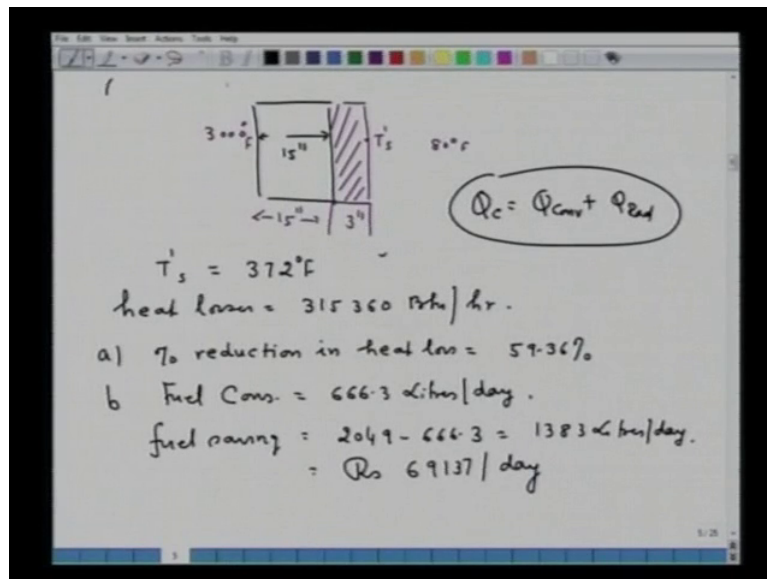 File Edit View Insert Actions Tools Help
3000°F 15" T's 80°F
<-15"-> 3"
Qc = Qconv + QRad
T's = 372°F
heat losses = 315 360 Btu/hr.
a) % reduction in heat loss = 59.36%
b Fuel Cons. = 666.3 Litres/day.
fuel saving = 2049 - 666.3 = 1383 Litres/day.
= Rs 69137/day
5/25
5